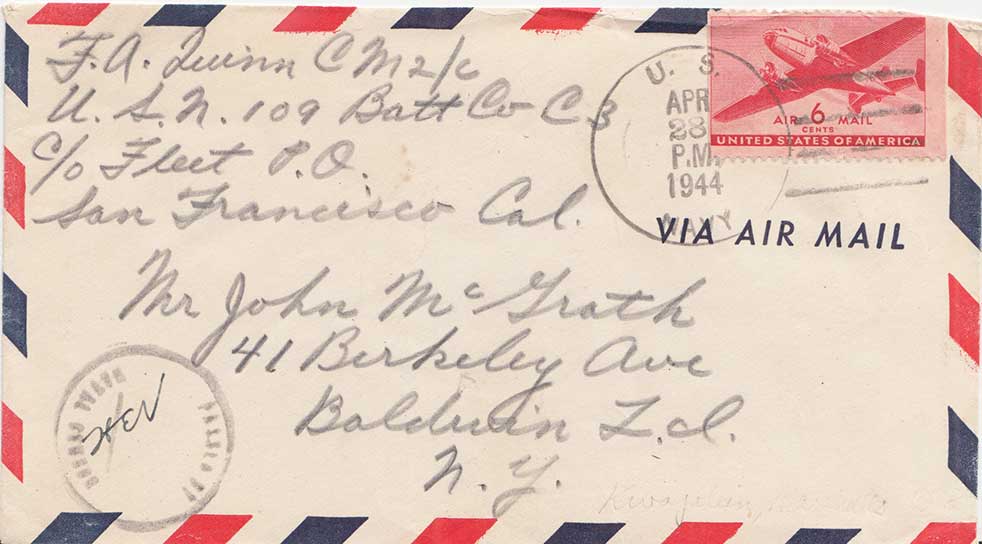 F. A. Quinn C M 2/c
U. S. N. 109 Batt Co C-3
c/o Fleet P. O.
San Francisco Cal.
U. S.
APR
28
P.M.
1944
NAVY
AIR 6 MAIL
CENTS
UNITED STATES OF AMERICA
VIA AIR MAIL
Mr John McGrath
41 Berkeley Ave
Baldwin L. I.
N. Y.
PASSED BY
NAVAL CENSOR
Kwajalein,